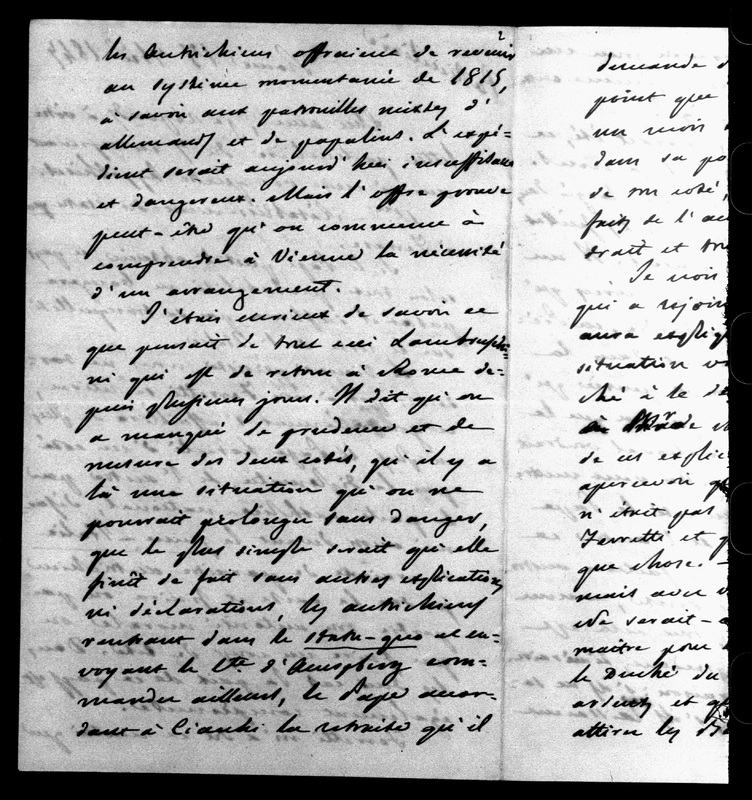 2
les Autrichiens offraient de revenir
au système momentané de 1815,
à savoir aux patrouilles mixtes d'
allemands et de papalins. L'expé-
dient serait aujourd'hui insuffisant
et dangereux. Mais l'offre prouve
peut-être qu'on commence à
comprendre à Vienne la nécessité
d'un arrangement.
J'étais curieux de savoir ce
que pensait de tout ceci Lambruschi-
ni qui est de retour à Rome de-
puis plusieurs jours. Il dit qu'on
a manqué de prudence et de
mesure des deux cotés, qu'il y a
là une situation qu'on ne
pourrait prolonger sans danger,
que le plus simple serait qu'elle
finît de fait sans autres explications
ni déclarations, les autrichiens
rentrant dans le statu-quo et en-
voyant le Cte d'Auersperg com-
mander ailleurs, le Pape accor-
dant à Ciacchi la retraite qu'il
demande d
point que
un mois
dans sa po
de son coté,
faits de l'au
droit et tou
Je vois
qui a rejoin
aura expliq
situation v
ché à le dé
de ces explic
apercevoir q
n'était pas
Ferretti et q
que chose. -
mais avec v
ede serait-
maitre pour
le Duché du
et q
attirer les